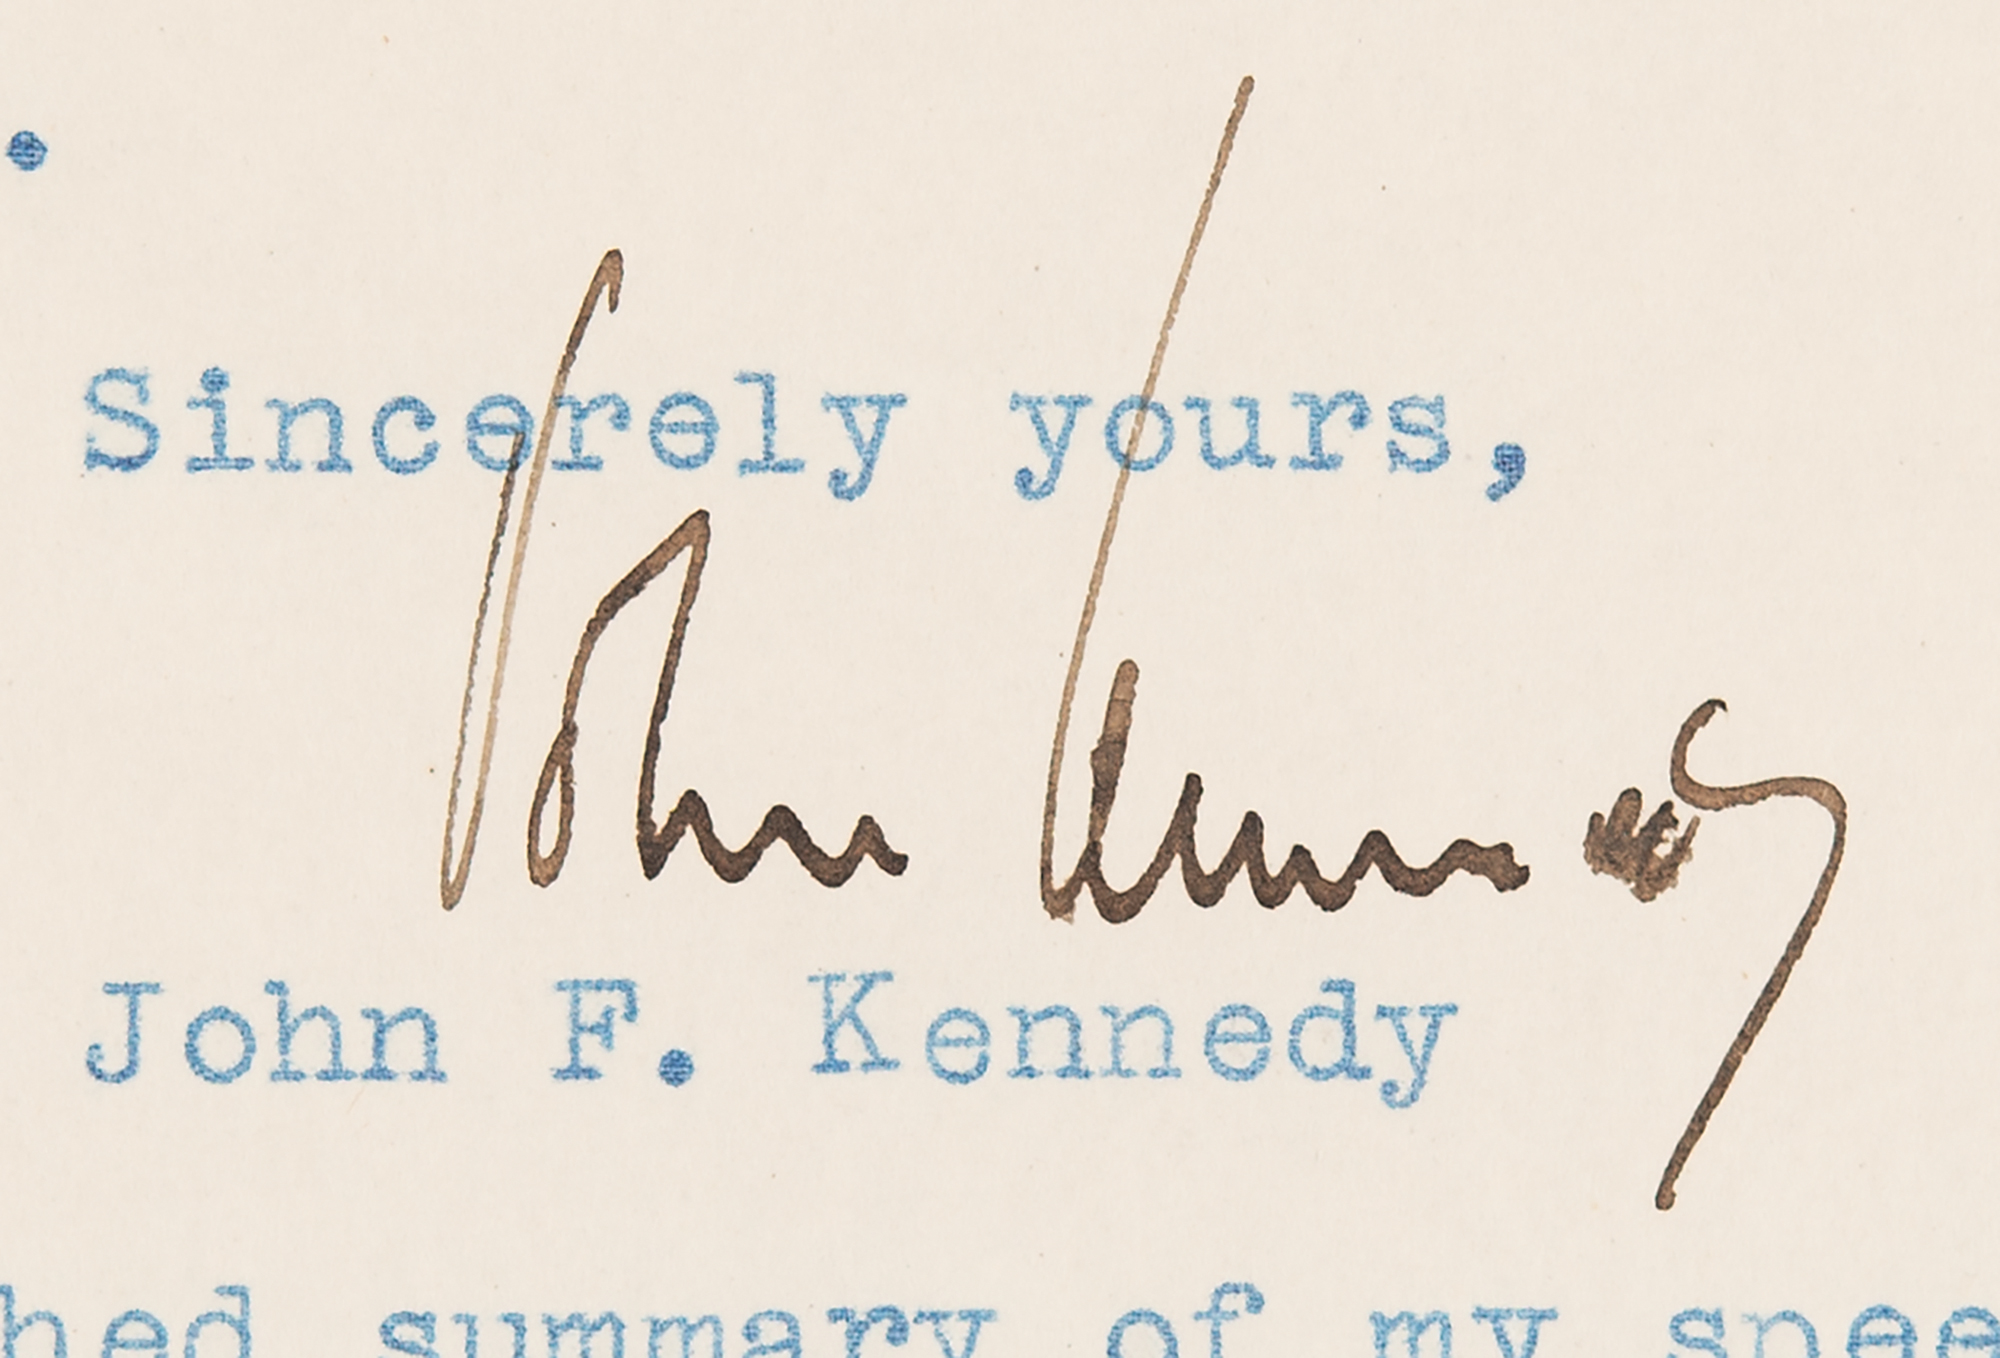 .
Sincerely yours,
John Kennedy
John F. Kennedy
hed summary of my spee